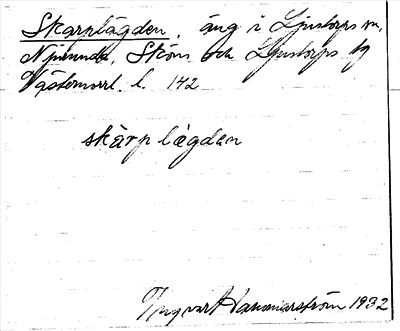 Skarplägden, äng i Ljustorps sn,
Njurunda, Sköns och Ljustorps tg
Västernorrl. l. 142
skàrp lægdan
Ingvar Hammarström 1932